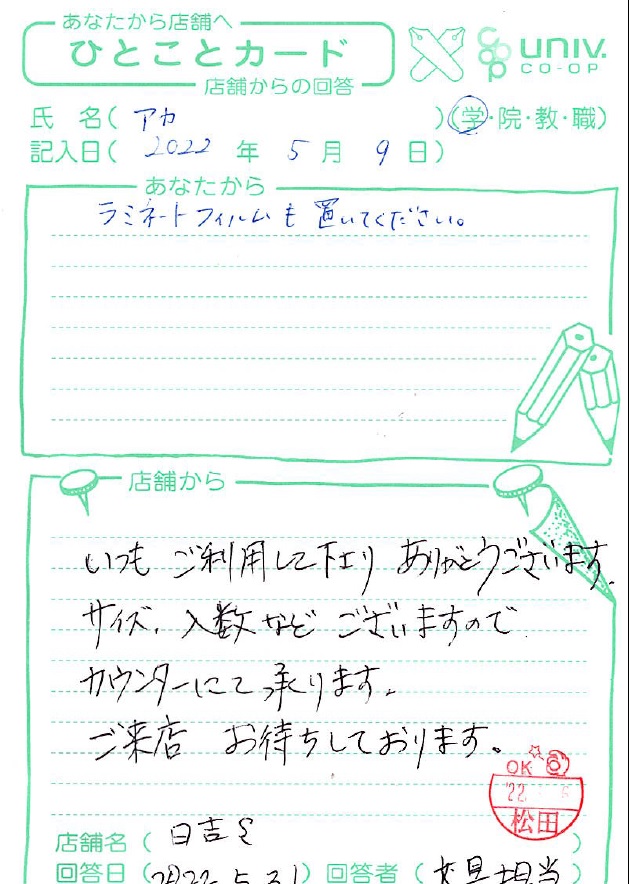 あなたから店舗へ
ひとことカード
店舗からの回答
coop univ.
CO-OP
氏 名( アカ )(学・院・教・職)
記入日( 2022 年 5 月 9 日)
あなたから
ラミネートフィルムも置いてください。
店舗から
いつも ご利用して下さり ありがとうございます.
サイズ、入数など ございますので
カウンターにて承ります。
ご来店 お待ちしております。
OK
'22.
松田
店舗名( 日吉 )
回答日(2022.5.31)回答者(文具担当)